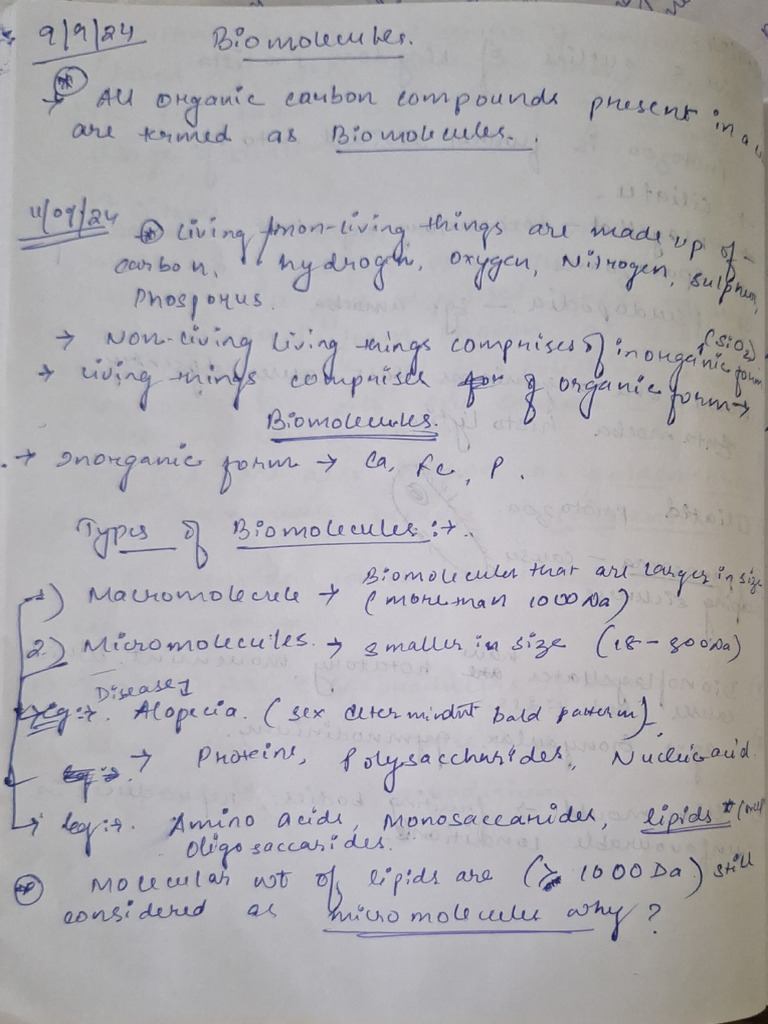 9/9/24 Biomolecules.
→ All organic carbon compounds present in a
are termed as Biomolecules.
11/09/24 Living / non-living things are made up of
carbon, hydrogen, oxygen, Nitrogen, Sulphur,
Phosporus.
→ Non-living living things comprises of inorganic form (SiO2)
→ Living things comprises of organic form →
Biomolecules.
→ Inorganic form → Ca, Fe, P.
Types of Biomolecules :→.
1) Macromolecule → Biomolecules that are larger in size
(more than 1000 Da)
2) Micromolecules. → smaller in size (18 - 800 Da)
Disease
eg:→. Alopecia. (sex bald pattern)
→ Proteins, Polysaccharides, Nucleic acid.
eg:→. Amino acids, Monosaccarides, lipids *
Oligosaccarides.
Molecular wt of lipids are (≥ 1000 Da) still
considered as micromolecules why?